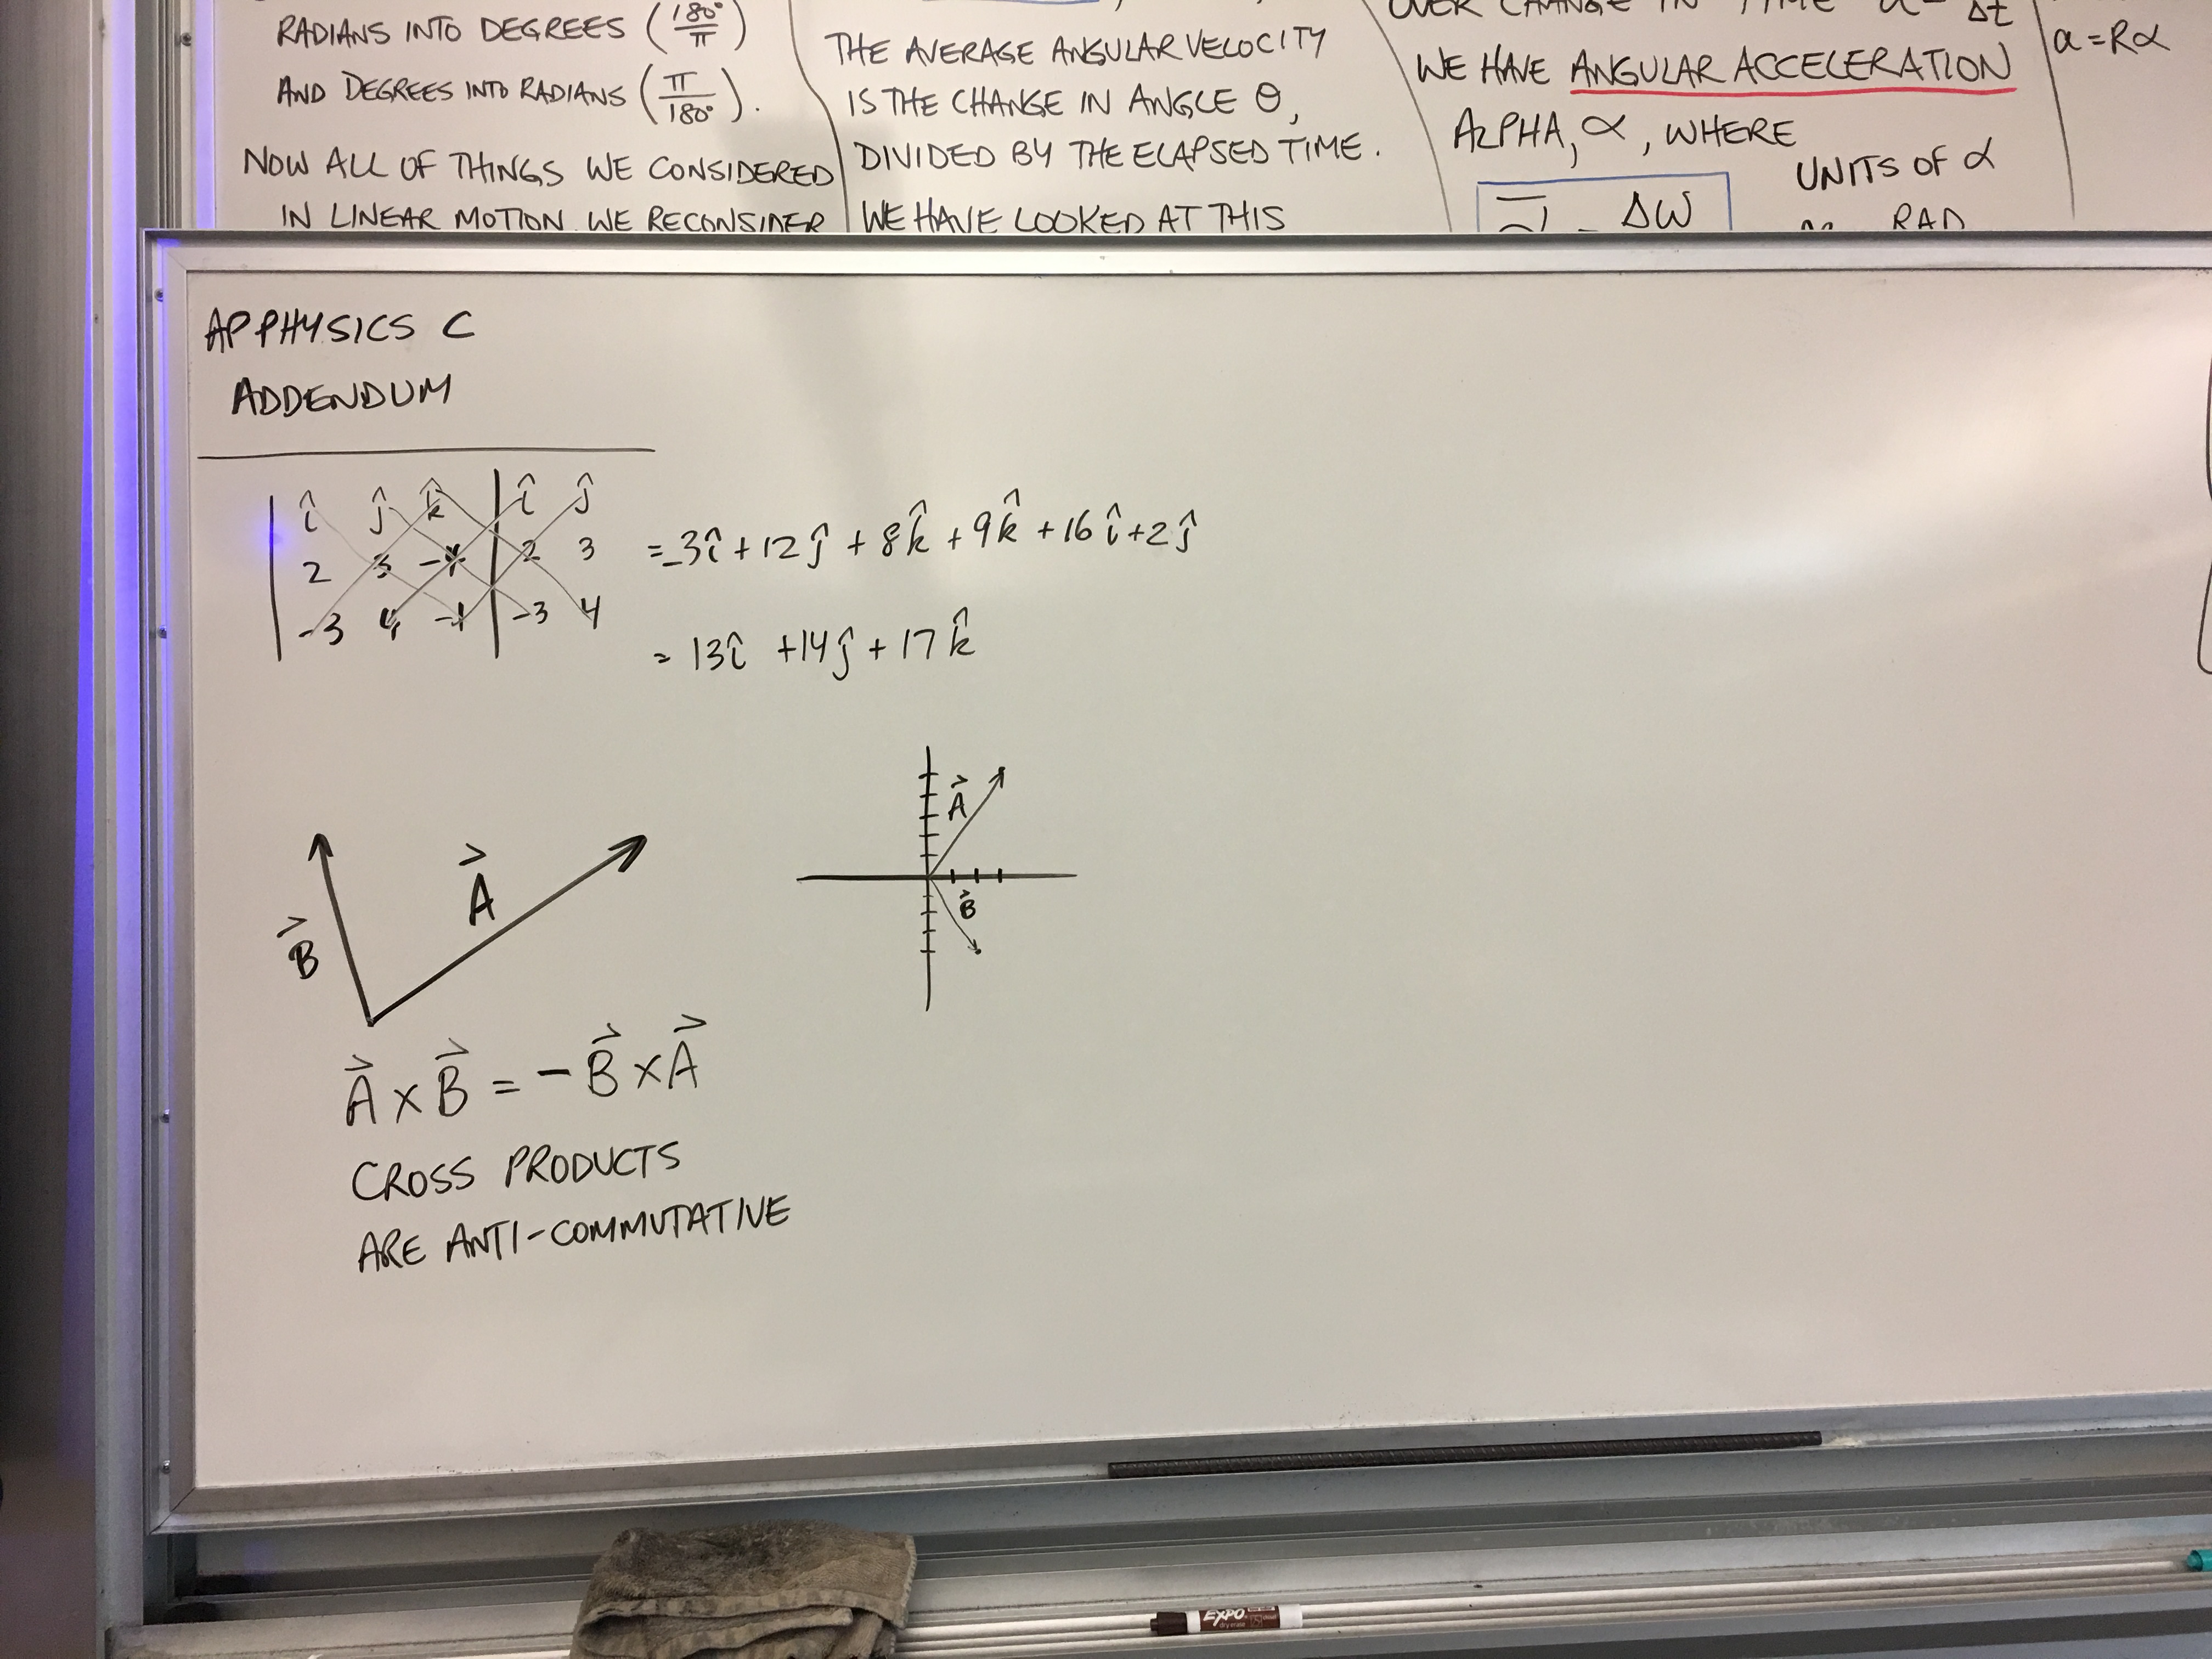 RADIANS INTO DEGREES (180°/π)
AND DEGREES INTO RADIANS (π/180°).
NOW ALL OF THINGS WE CONSIDERED
IN LINEAR MOTION WE RECONSIDER
THE AVERAGE ANGULAR VELOCITY
IS THE CHANGE IN ANGLE θ,
DIVIDED BY THE ELAPSED TIME.
WE HAVE LOOKED AT THIS
OVER CHANGE IN TIME a = Δt
WE HAVE ANGULAR ACCELERATION
ALPHA, α, WHERE
Δω
UNITS OF α
RAD
a = Rα
AP PHYSICS C
ADDENDUM
î ĵ k̂ î ĵ
2 3 -4 2 3
-3 4 -1 -3 4
= -3î + 12ĵ + 8k̂ + 9k̂ + 16î + 2ĵ
= 13î + 14ĵ + 17k̂
B⃗ A⃗
A⃗
B⃗
A⃗ × B⃗ = - B⃗ × A⃗
CROSS PRODUCTS
ARE ANTI-COMMUTATIVE
EXPO
dry erase